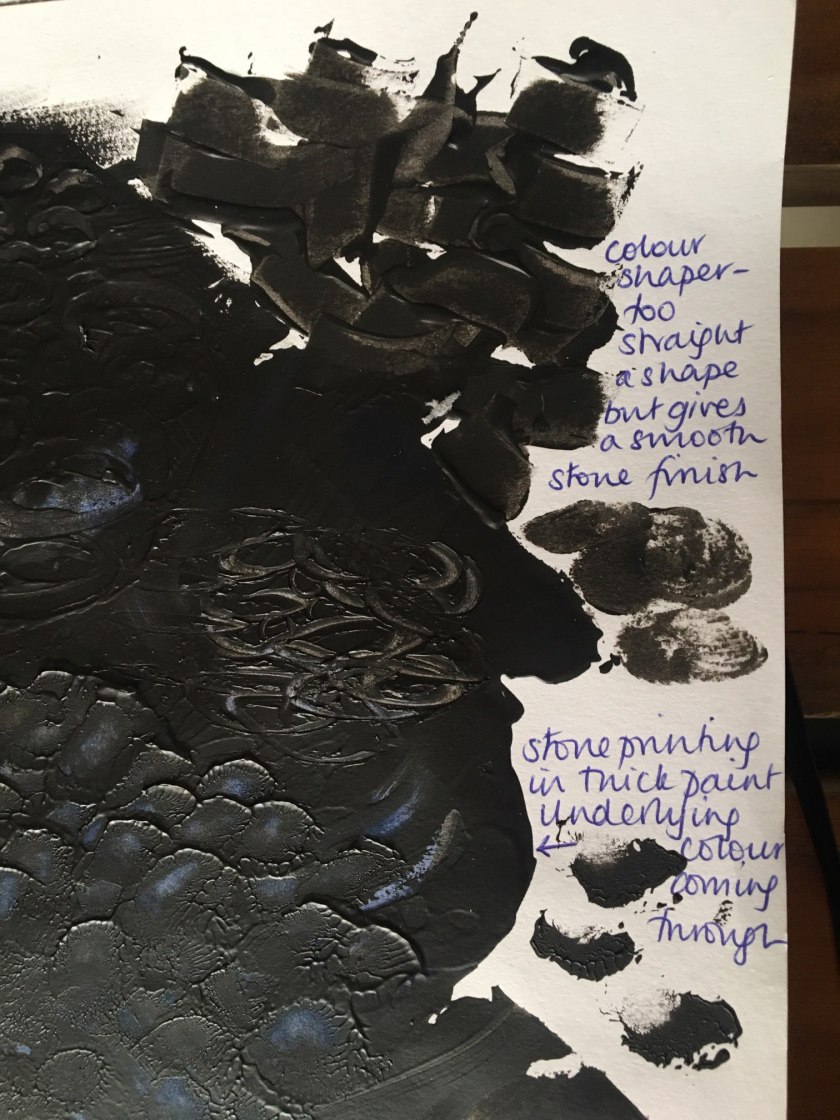 colour
shaper-
too
straight
a shape
but gives
a smooth
stone finish
stone printing
in thick paint
underlying
colour
coming
through